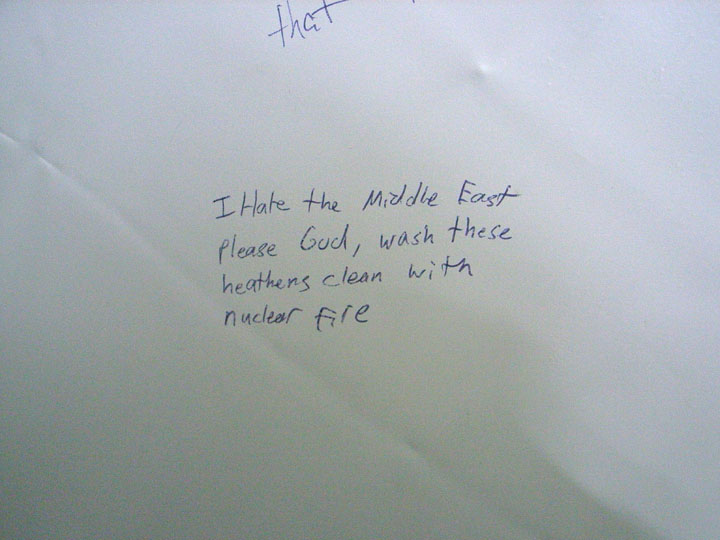 that
I Hate the Middle East
please God, wash these
heathens clean with
nuclear fire